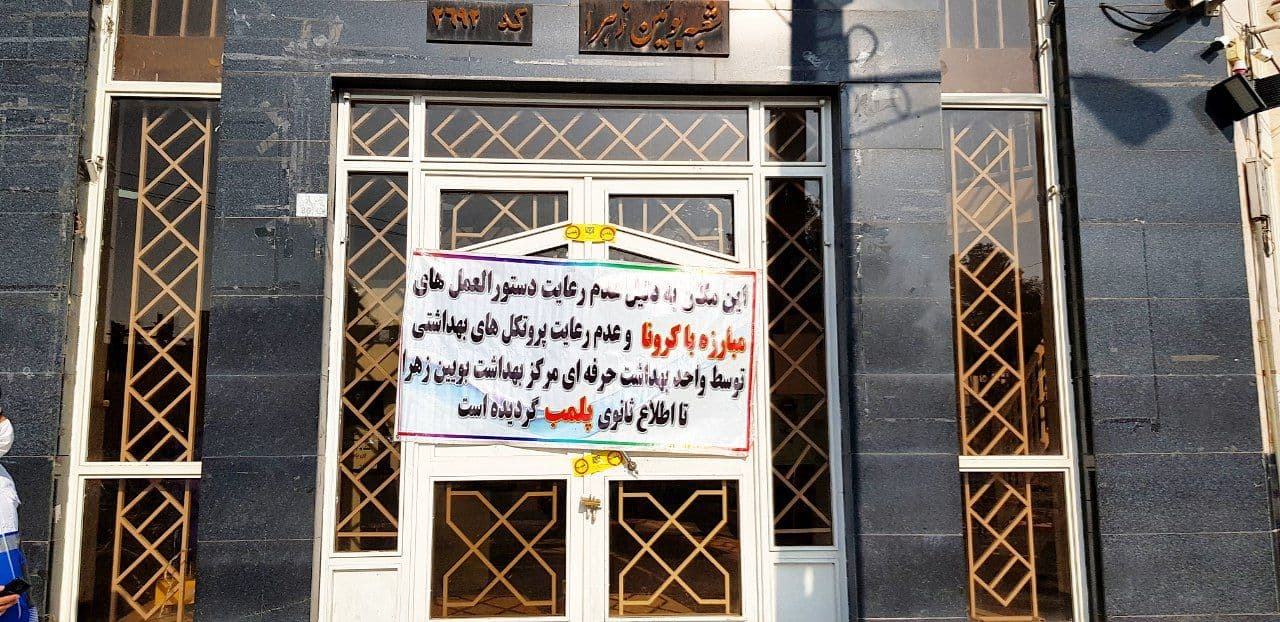 شعبه بوئین زهرا
کد ۲۶۹۲
این مکان به دلیل عدم رعایت دستورالعمل های
مبارزه با کرونا و عدم رعایت پروتکل های بهداشتی
توسط واحد بهداشت حرفه ای مرکز بهداشت بویین زهرا
تا اطلاع ثانوی پلمب گردیده است